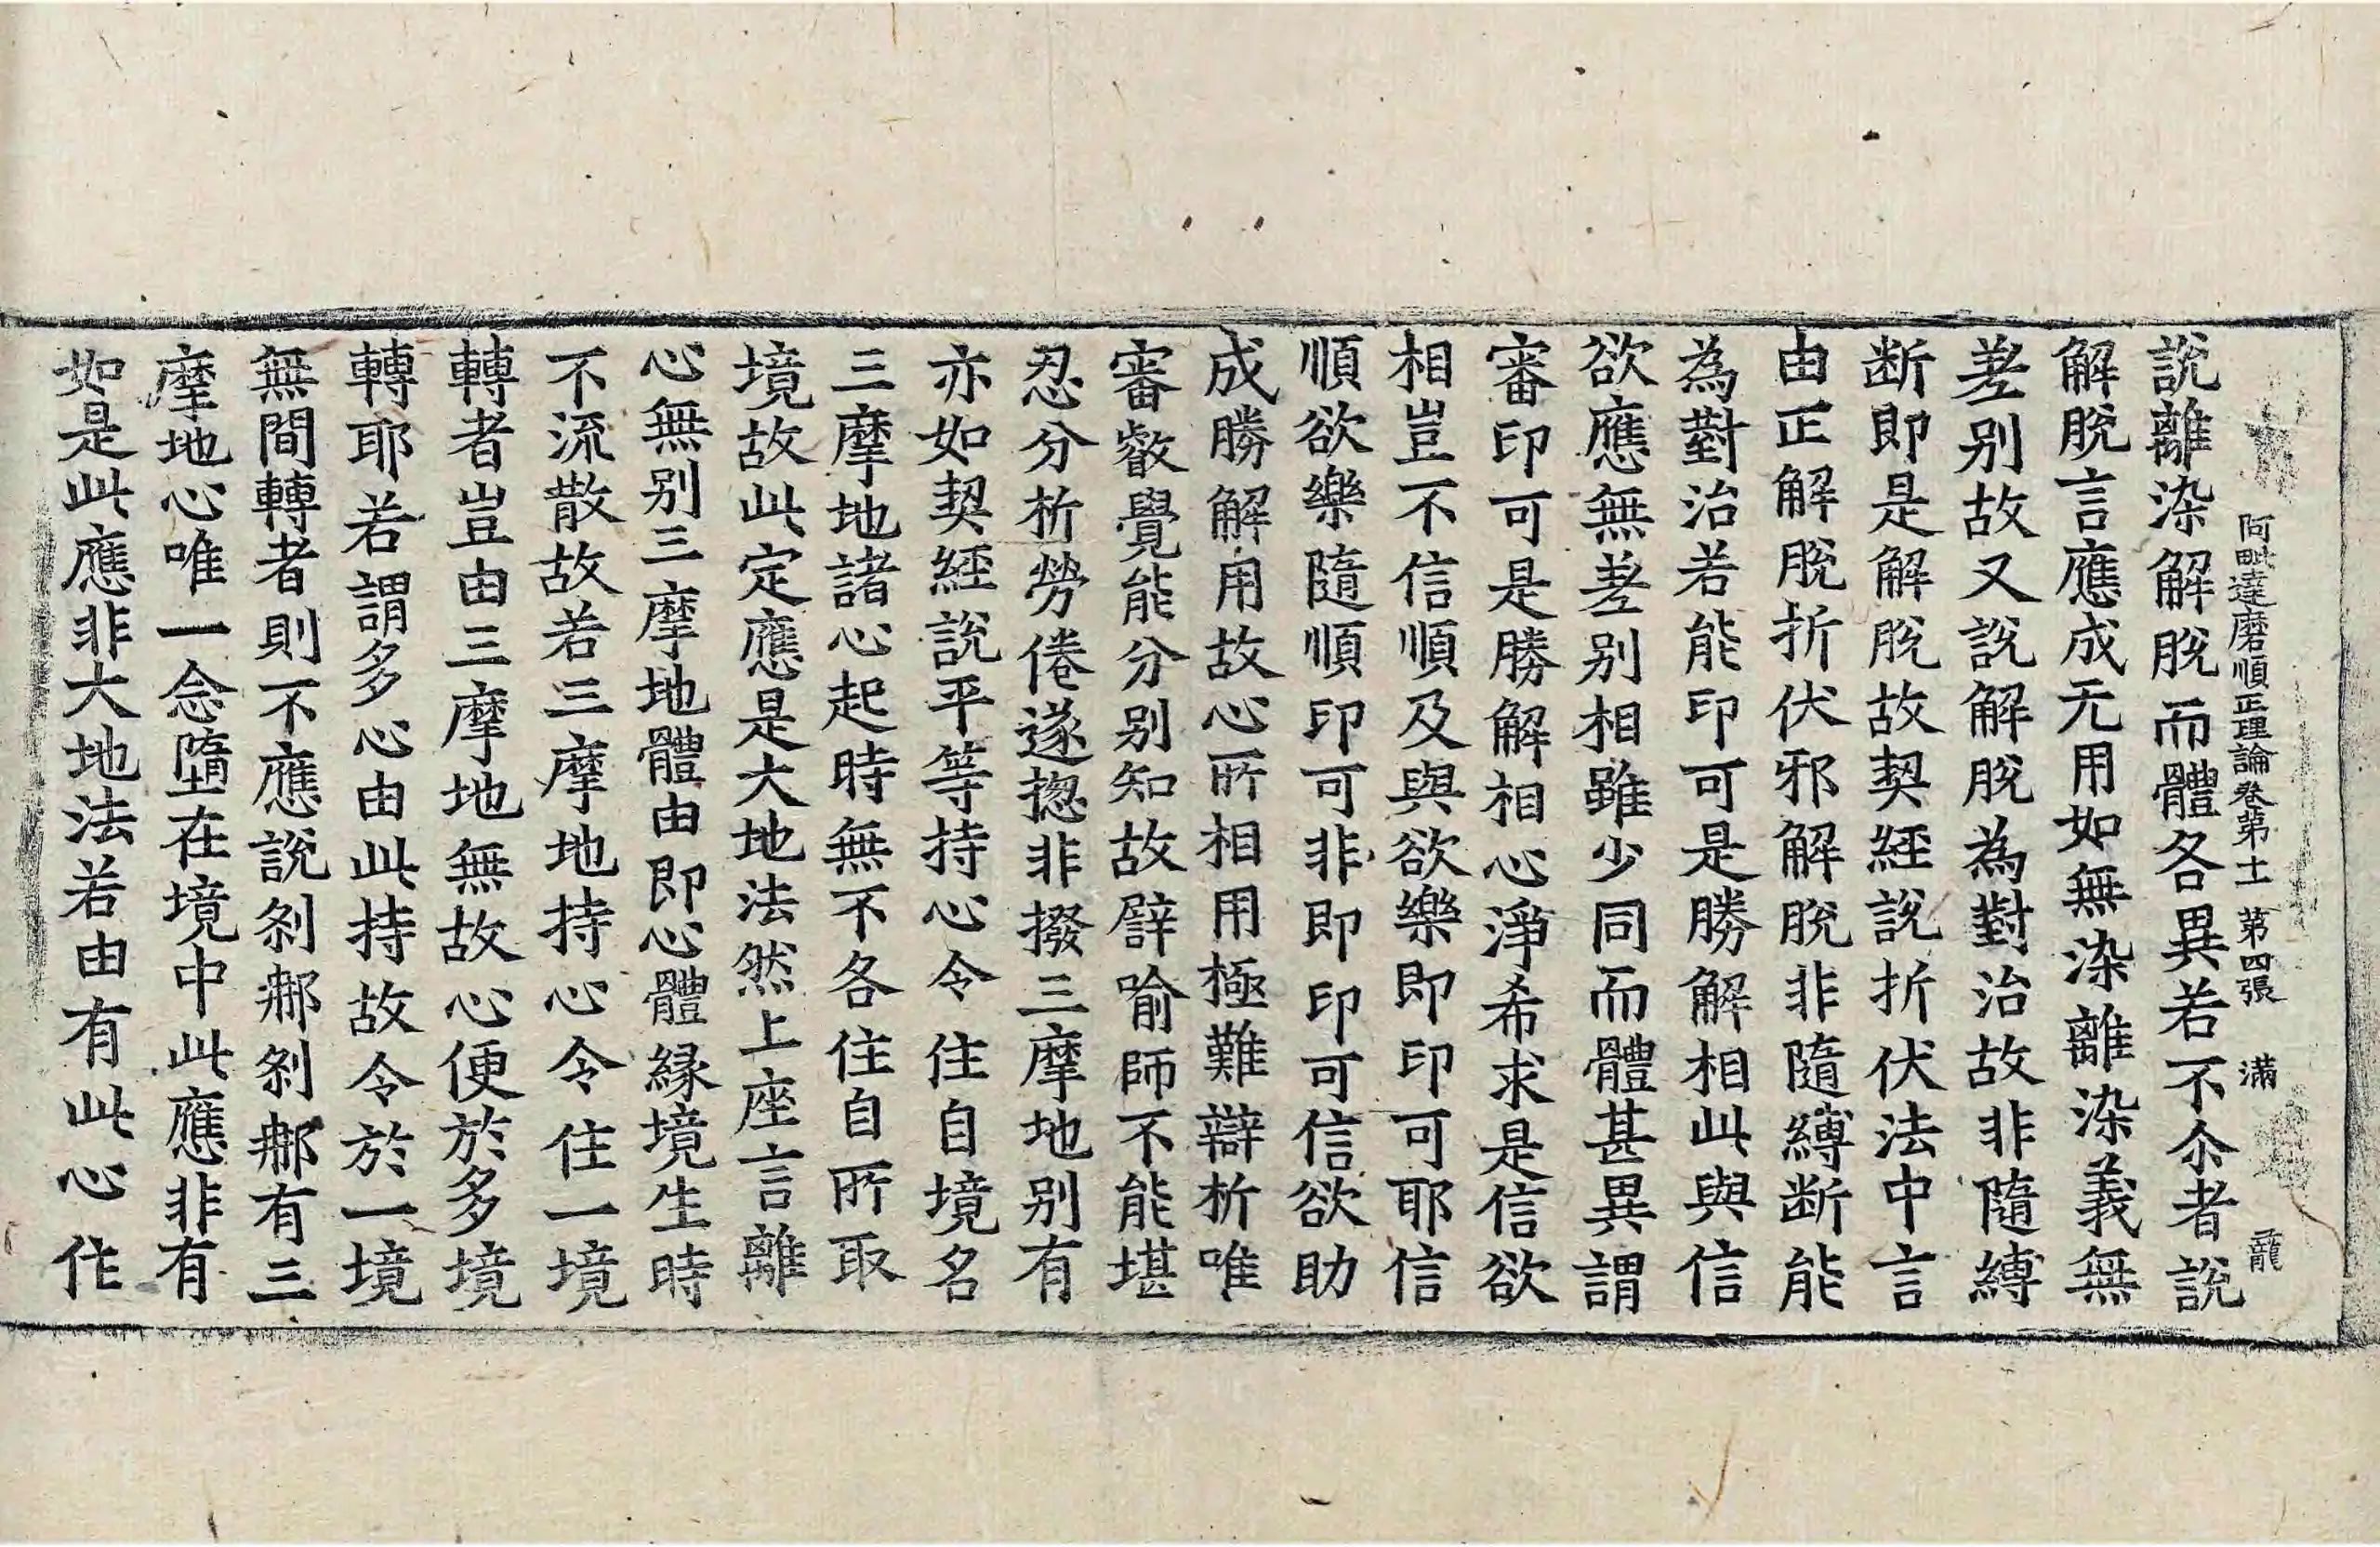 阿毗達磨順正理論卷第十一 第四張 滿 龍
說離染解脫而體各異若不尒者說
解脫言應成无用如無染離染義無
差别故又說解脫為對治故非隨縛
断即是解脫故契經說折伏法中言
由正解脫折伏邪解脫非隨縛断能
為對治若能印可是勝解相此與信
欲應無差别相雖少同而體甚異謂
審印可是勝解相心淨希求是信欲
相豈不信順及與欲樂即印可耶信
順欲樂隨順印可非即印可信欲助
成勝解用故心所相用極難辯析唯
審叡覺能分别知故譬喻師不能堪
忍分析勞倦遂揔非撥三摩地别有
亦如契經說平等持心令住自境名
三摩地諸心起時無不各住自所取
境故此定應是大地法然上座言離
心無别三摩地體由即心體緣境生時
不流散故若三摩地持心令住一境
轉者豈由三摩地無故心便於多境
轉耶若謂多心由此持故令於一境
無間轉者則不應說刹那刹那有三
摩地心唯一念墮在境中此應非有
如是此應非大地法若由有此心作